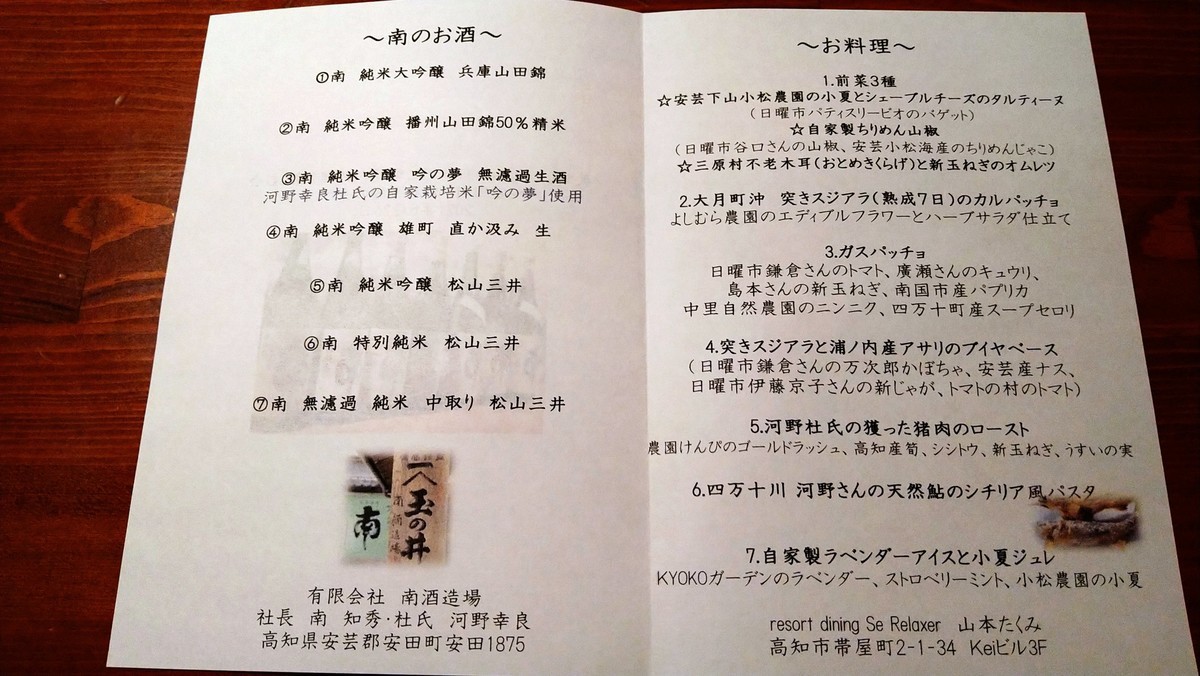 ～南のお酒～
①南 純米大吟醸 兵庫山田錦
②南 純米吟醸 播州山田錦50％精米
③南 純米吟醸 吟の夢 無濾過生酒
河野幸良杜氏の自家栽培米「吟の夢」使用
④南 純米吟醸 雄町 直か汲み 生
⑤南 純米吟醸 松山三井
⑥南 特別純米 松山三井
⑦南 無濾過 純米 中取り 松山三井
南
玉の井
有限会社 南酒造場
社長 南 知秀・杜氏 河野幸良
高知県安芸郡安田町安田1875
～お料理～
1.前菜3種
☆安芸下山小松農園の小夏とシェーブルチーズのタルティーヌ
（日曜市パティスリービオのバゲット）
☆自家製ちりめん山椒
（日曜市谷口さんの山椒、安芸小松海産のちりめんじゃこ）
☆三原村不老木耳（おとめきくらげ）と新玉ねぎのオムレツ
2.大月町沖 突きスジアラ（熟成7日）のカルパッチョ
よしむら農園のエディブルフラワーとハーブサラダ仕立て
3.ガスパッチョ
日曜市鎌倉さんのトマト、廣瀬さんのキュウリ、
島本さんの新玉ねぎ、南国市産パプリカ
中里自然農園のニンニク、四万十町産スープセロリ
4.突きスジアラと浦ノ内産アサリのブイヤベース
（日曜市鎌倉さんの万次郎かぼちゃ、安芸産ナス、
日曜市伊藤京子さんの新じゃが、トマトの村のトマト）
5.河野杜氏の獲った猪肉のロースト
農園けんぴのゴールドラッシュ、高知産筍、シシトウ、新玉ねぎ、うすいの実
6.四万十川 河野さんの天然鮎のシチリア風パスタ
7.自家製ラベンダーアイスと小夏ジュレ
KYOKOガーデンのラベンダー、ストロベリーミント、小松農園の小夏
resort dining Se Relaxer 山本たくみ
高知市帯屋町2-1-34 Keiビル3F